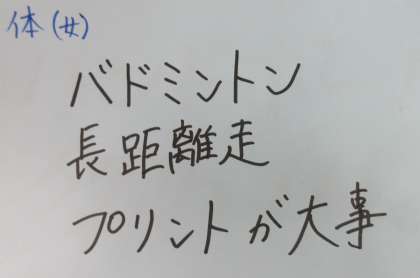 体(女)
バドミントン
長距離走
プリントが大事